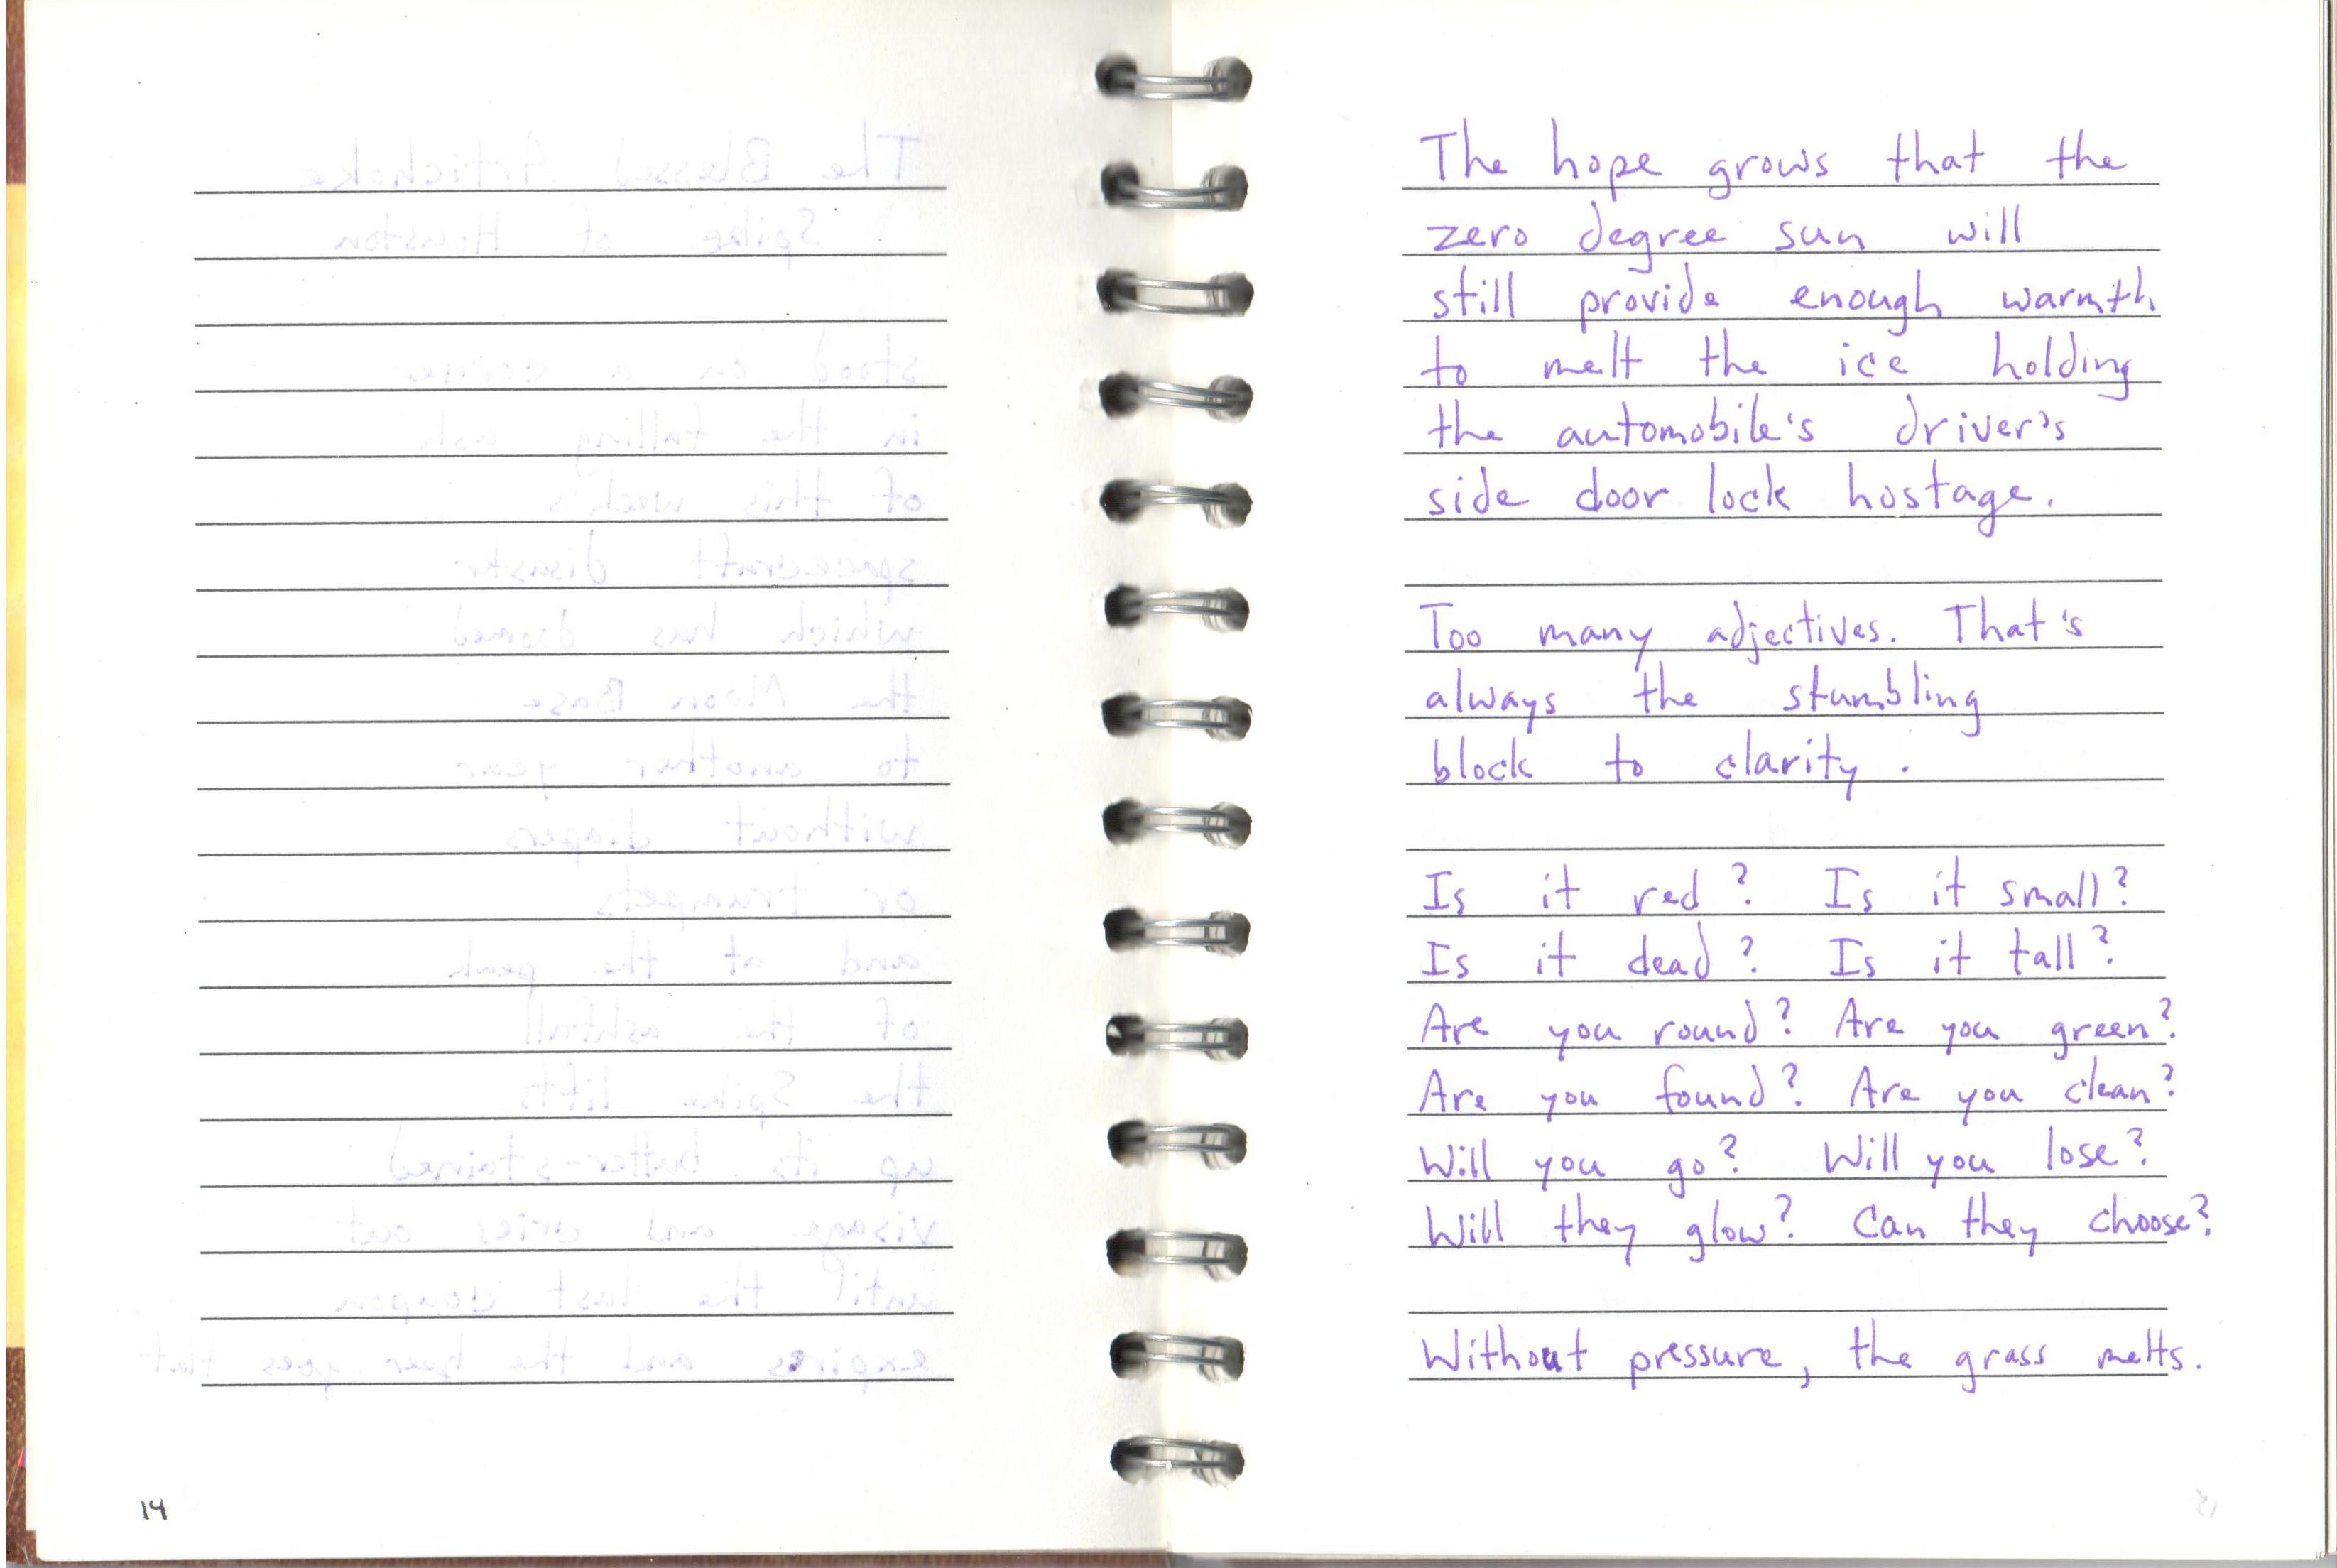 14
The hope grows that the
zero degree sun will
still provide enough warmth
to melt the ice holding
the automobile's driver's
side door lock hostage.
Too many adjectives. That's
always the stumbling
block to clarity.
Is it red? Is it small?
Is it dead? Is it tall?
Are you round? Are you green?
Are you found? Are you clean?
Will you go? Will you lose?
Will they glow? Can they choose?
Without pressure, the grass melts.